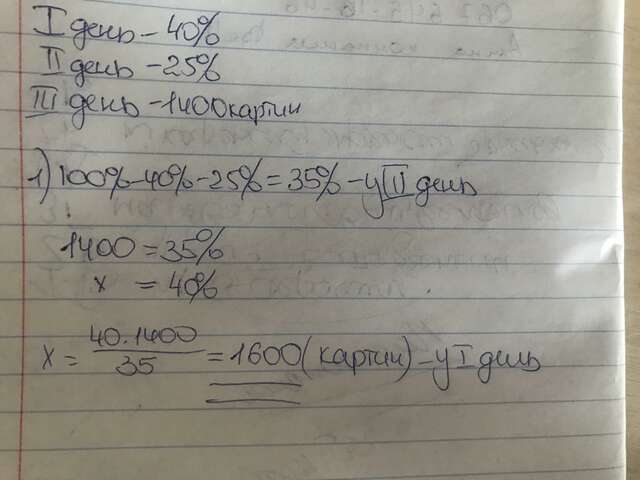 I день - 40%
II день - 25%
III день - 1400картин
1) 100%-40%-25%=35% - у III день
1400 = 35%
x = 40%
x = 40.1400 / 35 = 1600 (картин) - у I день